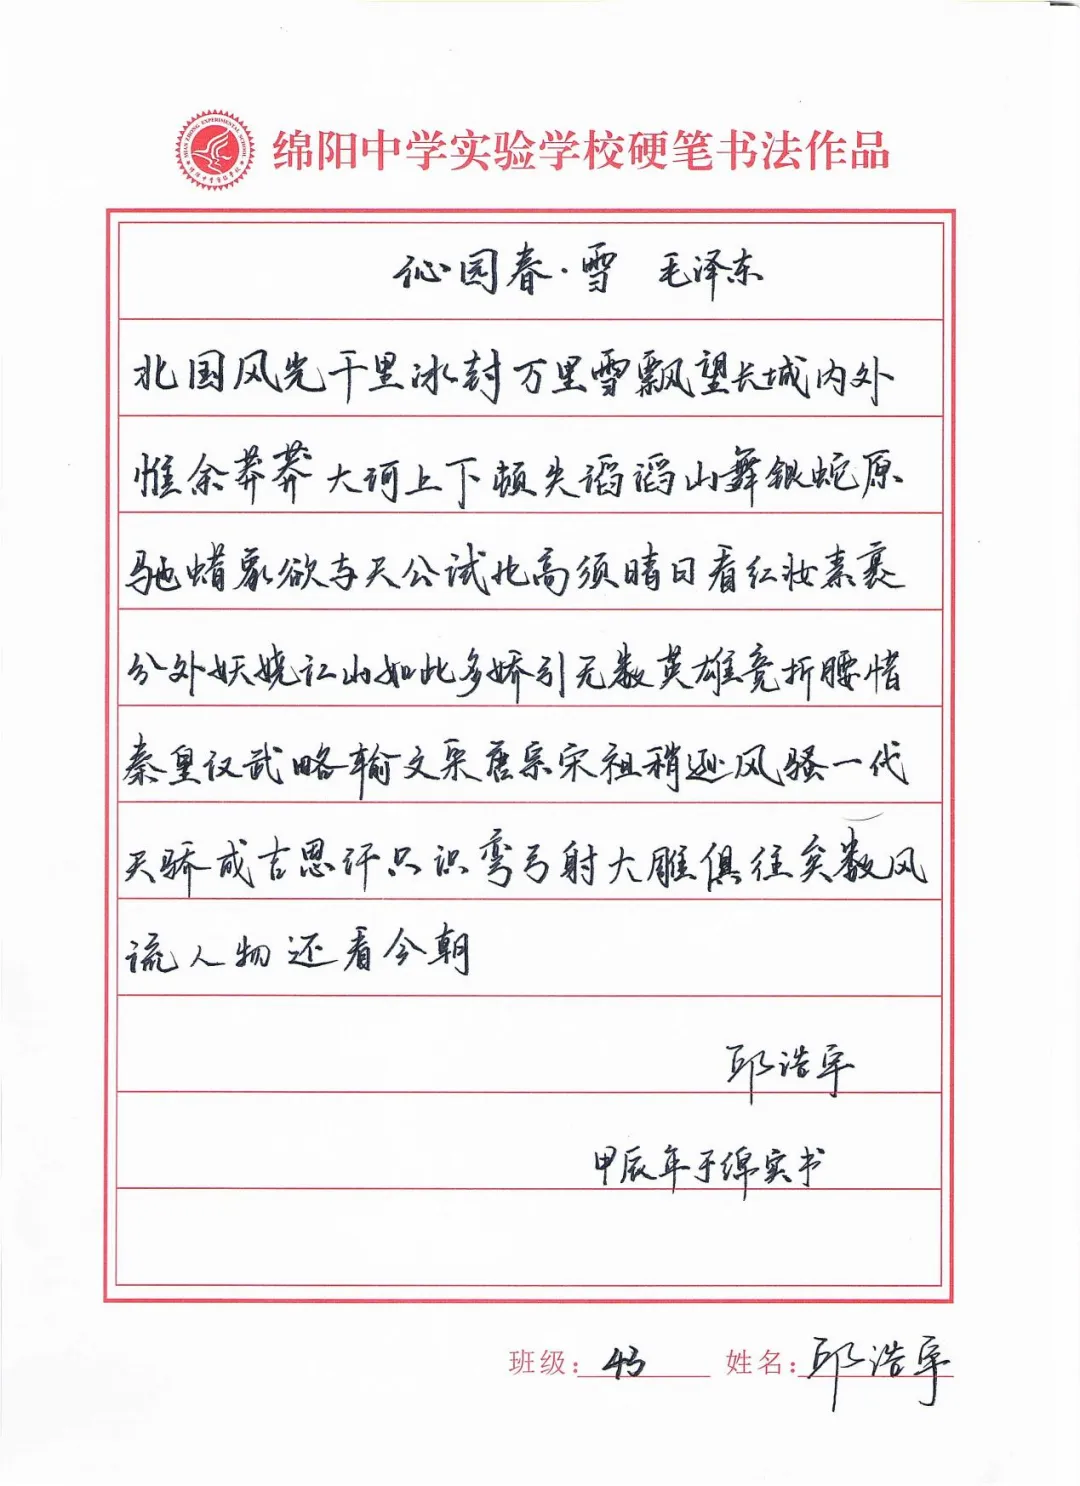 绵阳中学实验学校硬笔书法作品
沁园春·雪 毛泽东
北国风光千里冰封万里雪飘望长城内外
惟余莽莽大河上下顿失滔滔山舞银蛇原
驰蜡象欲与天公试比高须晴日看红妆素裹
分外妖娆江山如此多娇引无数英雄竞折腰惜
秦皇汉武略输文采唐宗宋祖稍逊风骚一代
天骄成吉思汗只识弯弓射大雕俱往矣数风
流人物还看今朝
邱浩宇
甲辰年于绵实书
班级: 43 姓名: 邱浩宇